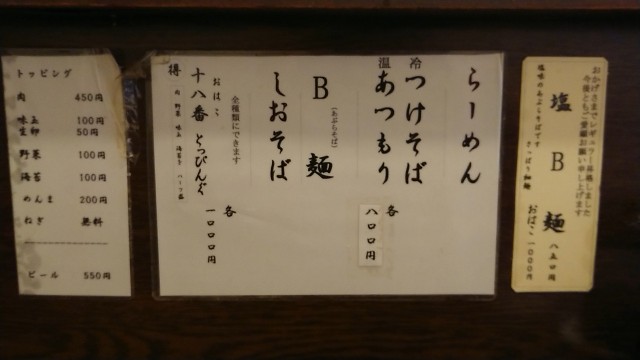 おかげさまでレギュラー昇格しました
今後ともご愛顧お願い申し上げます
塩B麺 八五〇円
塩味のあぶらそばです
さっぱり細麺
おはこ 一〇〇〇円
らーめん
冷 つけそば
温 あつもり
各 八〇〇円
B麺
(あぶらそば)
しおそば
全種類にできます
おはこ
十八番 とっぴんぐ
各 一〇〇〇円
得 肉 野菜 味玉 海苔 ハーフ
トッピング
肉 450円
味玉 100円
生卵 50円
野菜 100円
海苔 100円
めんま 200円
ねぎ 無料
ビール 550円